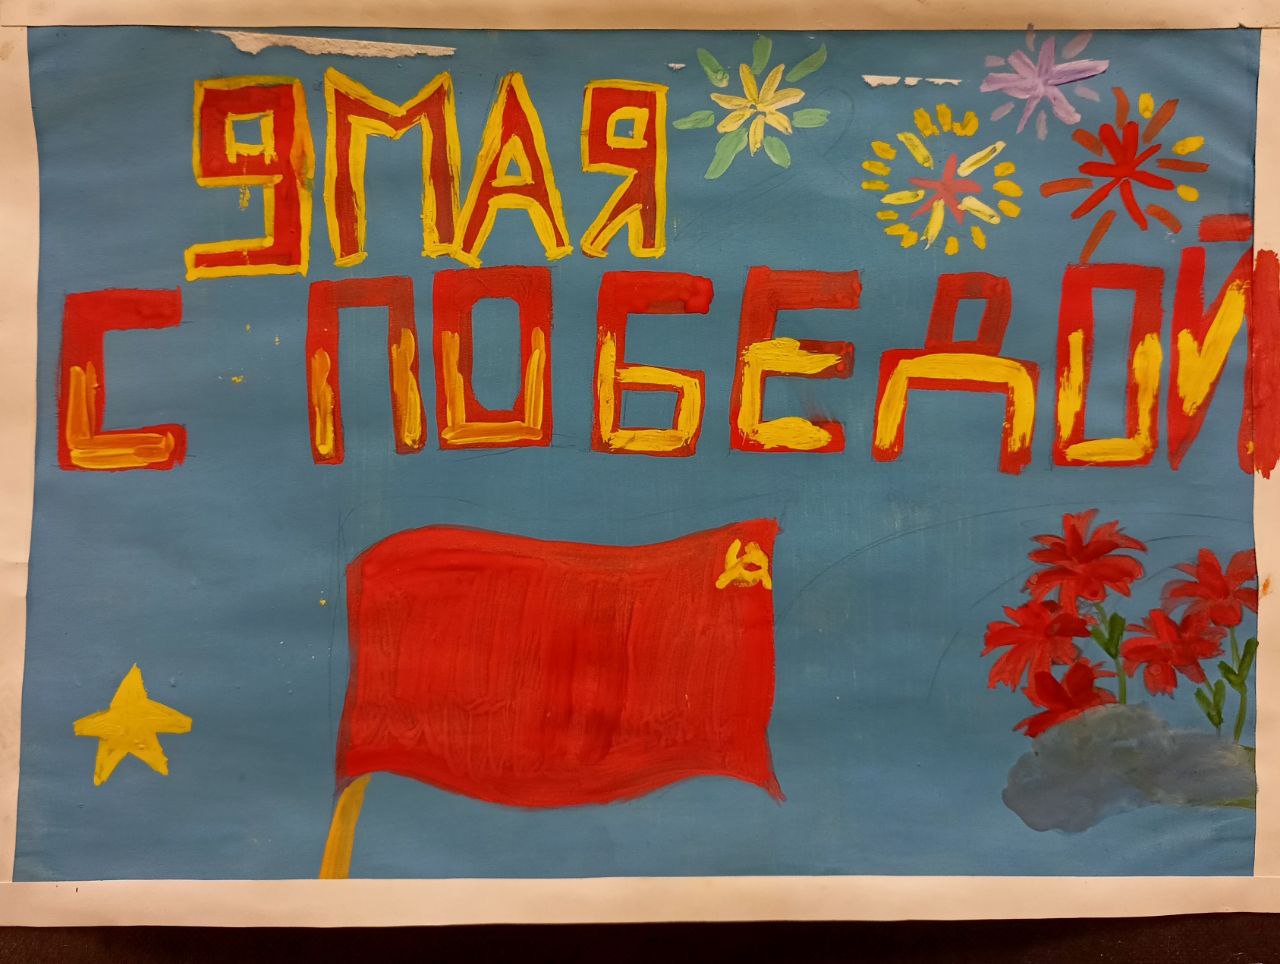 9 МАЯ
С ПОБЕДОЙ